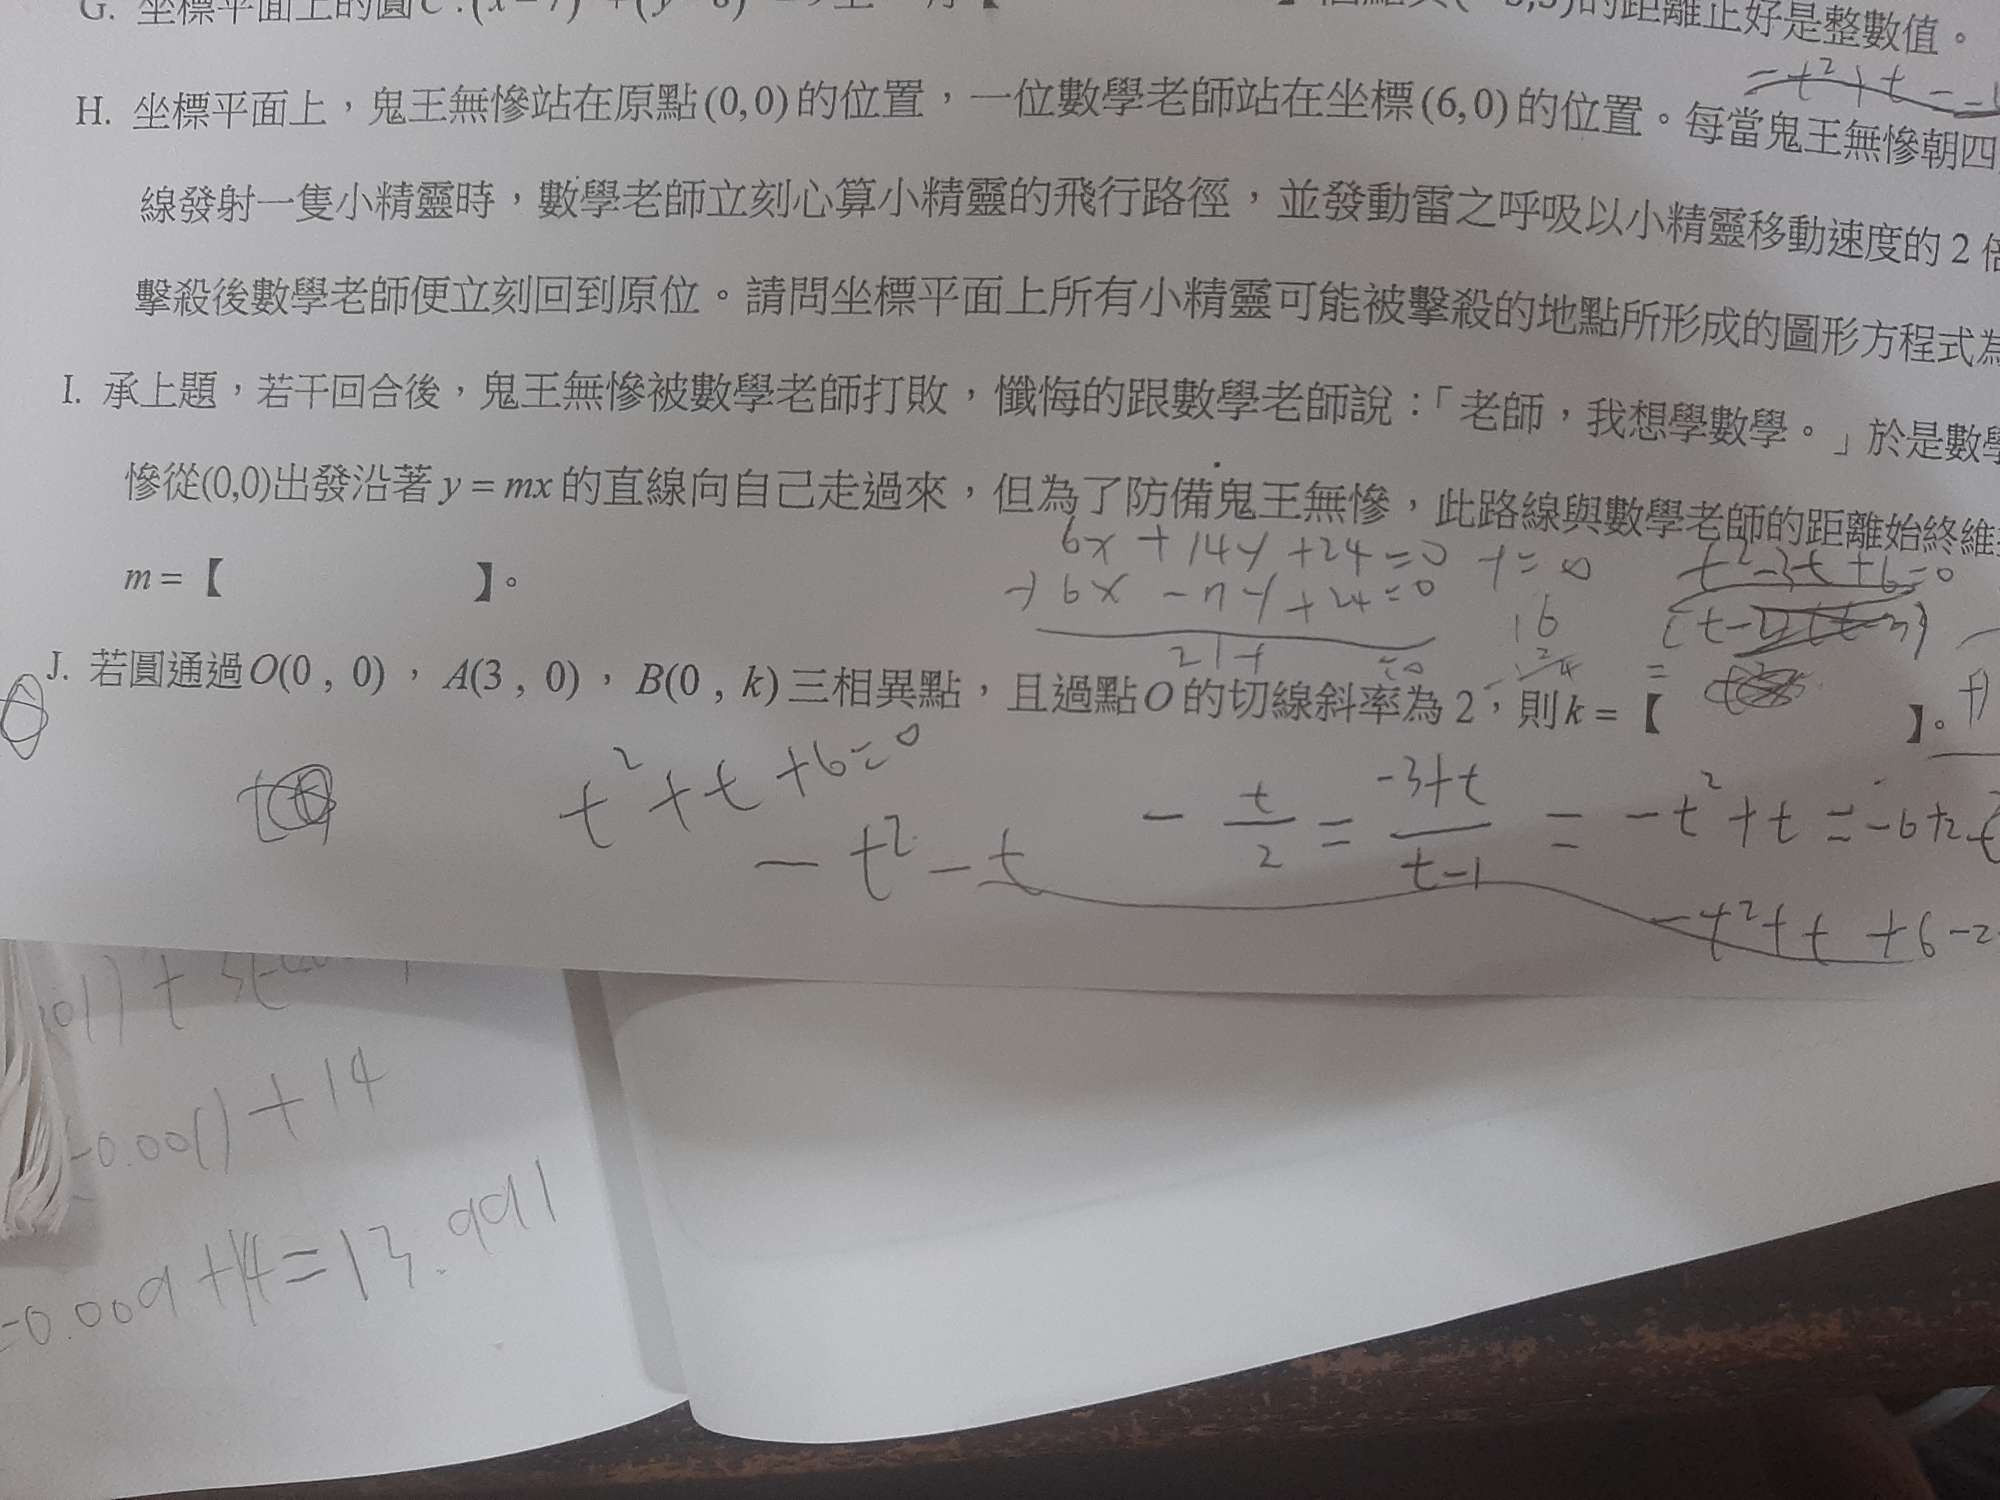 G. 坐標平面上的圓C
的距離正好是整數值。
H. 坐標平面上，鬼王無慘站在原點(0,0)的位置，一位數學老師站在坐標(6,0)的位置。每當鬼王無慘朝四
線發射一隻小精靈時，數學老師立刻心算小精靈的飛行路徑，並發動雷之呼吸以小精靈移動速度的2倍
擊殺後數學老師便立刻回到原位。請問坐標平面上所有小精靈可能被擊殺的地點所形成的圖形方程式為
I. 承上題，若干回合後，鬼王無慘被數學老師打敗，懺悔的跟數學老師說：「老師，我想學數學。」於是數學
慘從(0,0)出發沿著y=mx的直線向自己走過來，但為了防備鬼王無慘，此路線與數學老師的距離始終維
6x+14y+24=0
t²-3t+6=0
m=【 】。
16
24
J. 若圓通過O(0,0)，A(3,0)，B(0,k)三相異點，且過點O的切線斜率為2，則k=【 】。
t²+t+6=0
-t²-t
-t/2=(-3+t)/(t-1)=-t²+t=-6+2t
-t²+t+6-2
-0.001)+14
-0.009+14=13.991